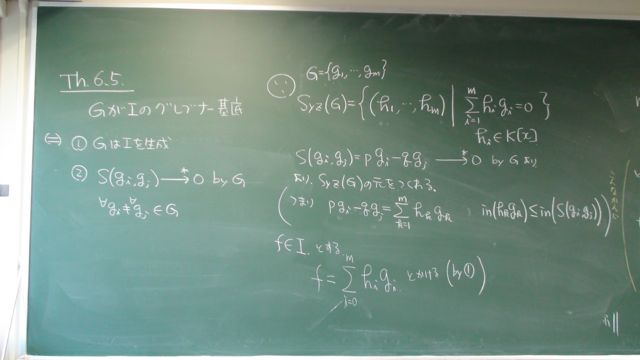 Th.6.5.
GがIのグレブナー基底
⇔ ① GはIを生成
② S(gi, gj) →* 0 by G
∀gi ≠ ∀gj ∈ G
∵ G={g1, ..., gm}
Syz(G)={(h1, ..., hm) | Σ_{i=1}^{m} hi gi = 0}
hi ∈ K[x]
S(gi, gj) = pgi - qgj →* 0 by G より
Syz(G)の元をつくれる。
(つまり pgi - qgj = Σ_{k=1}^{m} hk gk in(hk gk) ≤ in(S(gi, gj)))
f ∈ I とする
f = Σ_{i=0}^{m} hi gi とかける (by ①)